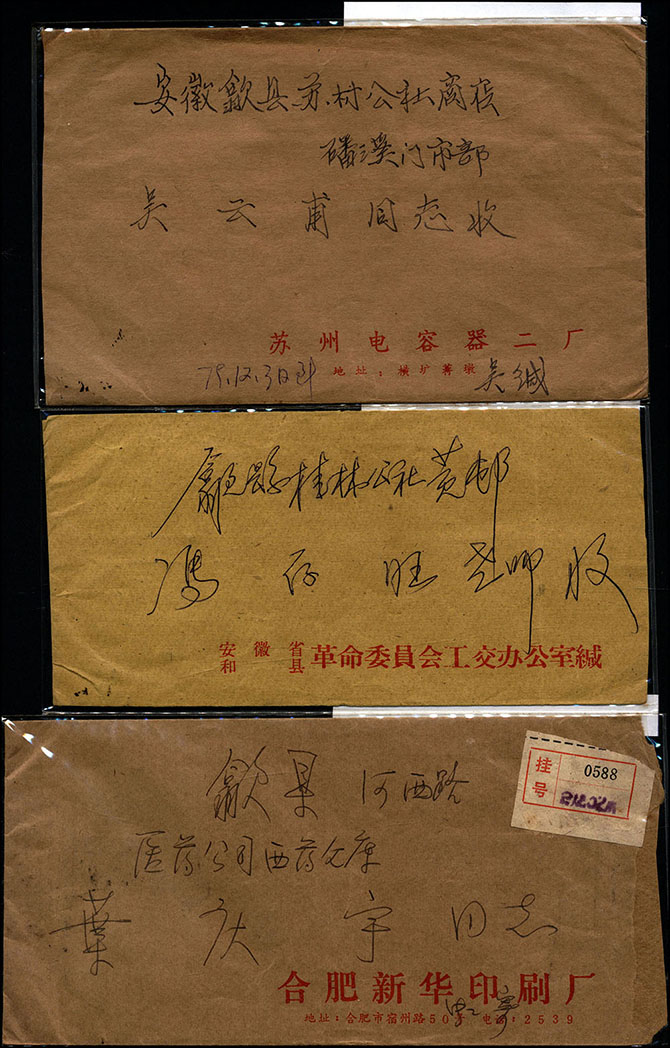 安徽歙县苏村公社商店
磻溪门市部
吴云甫同志收
苏州电容器二厂
75.12.3日斗
地址：横圹菁墩
吴缄
歙县桂林公社黄邨
冯百旺老师收
安徽省
和县
革命委員会工交办公室緘
挂号
0588
歙县河西路
医药公司西药仓库
葉庆宇同志
合肥新华印刷厂
地址：合肥市宿州路50号 电话：2539